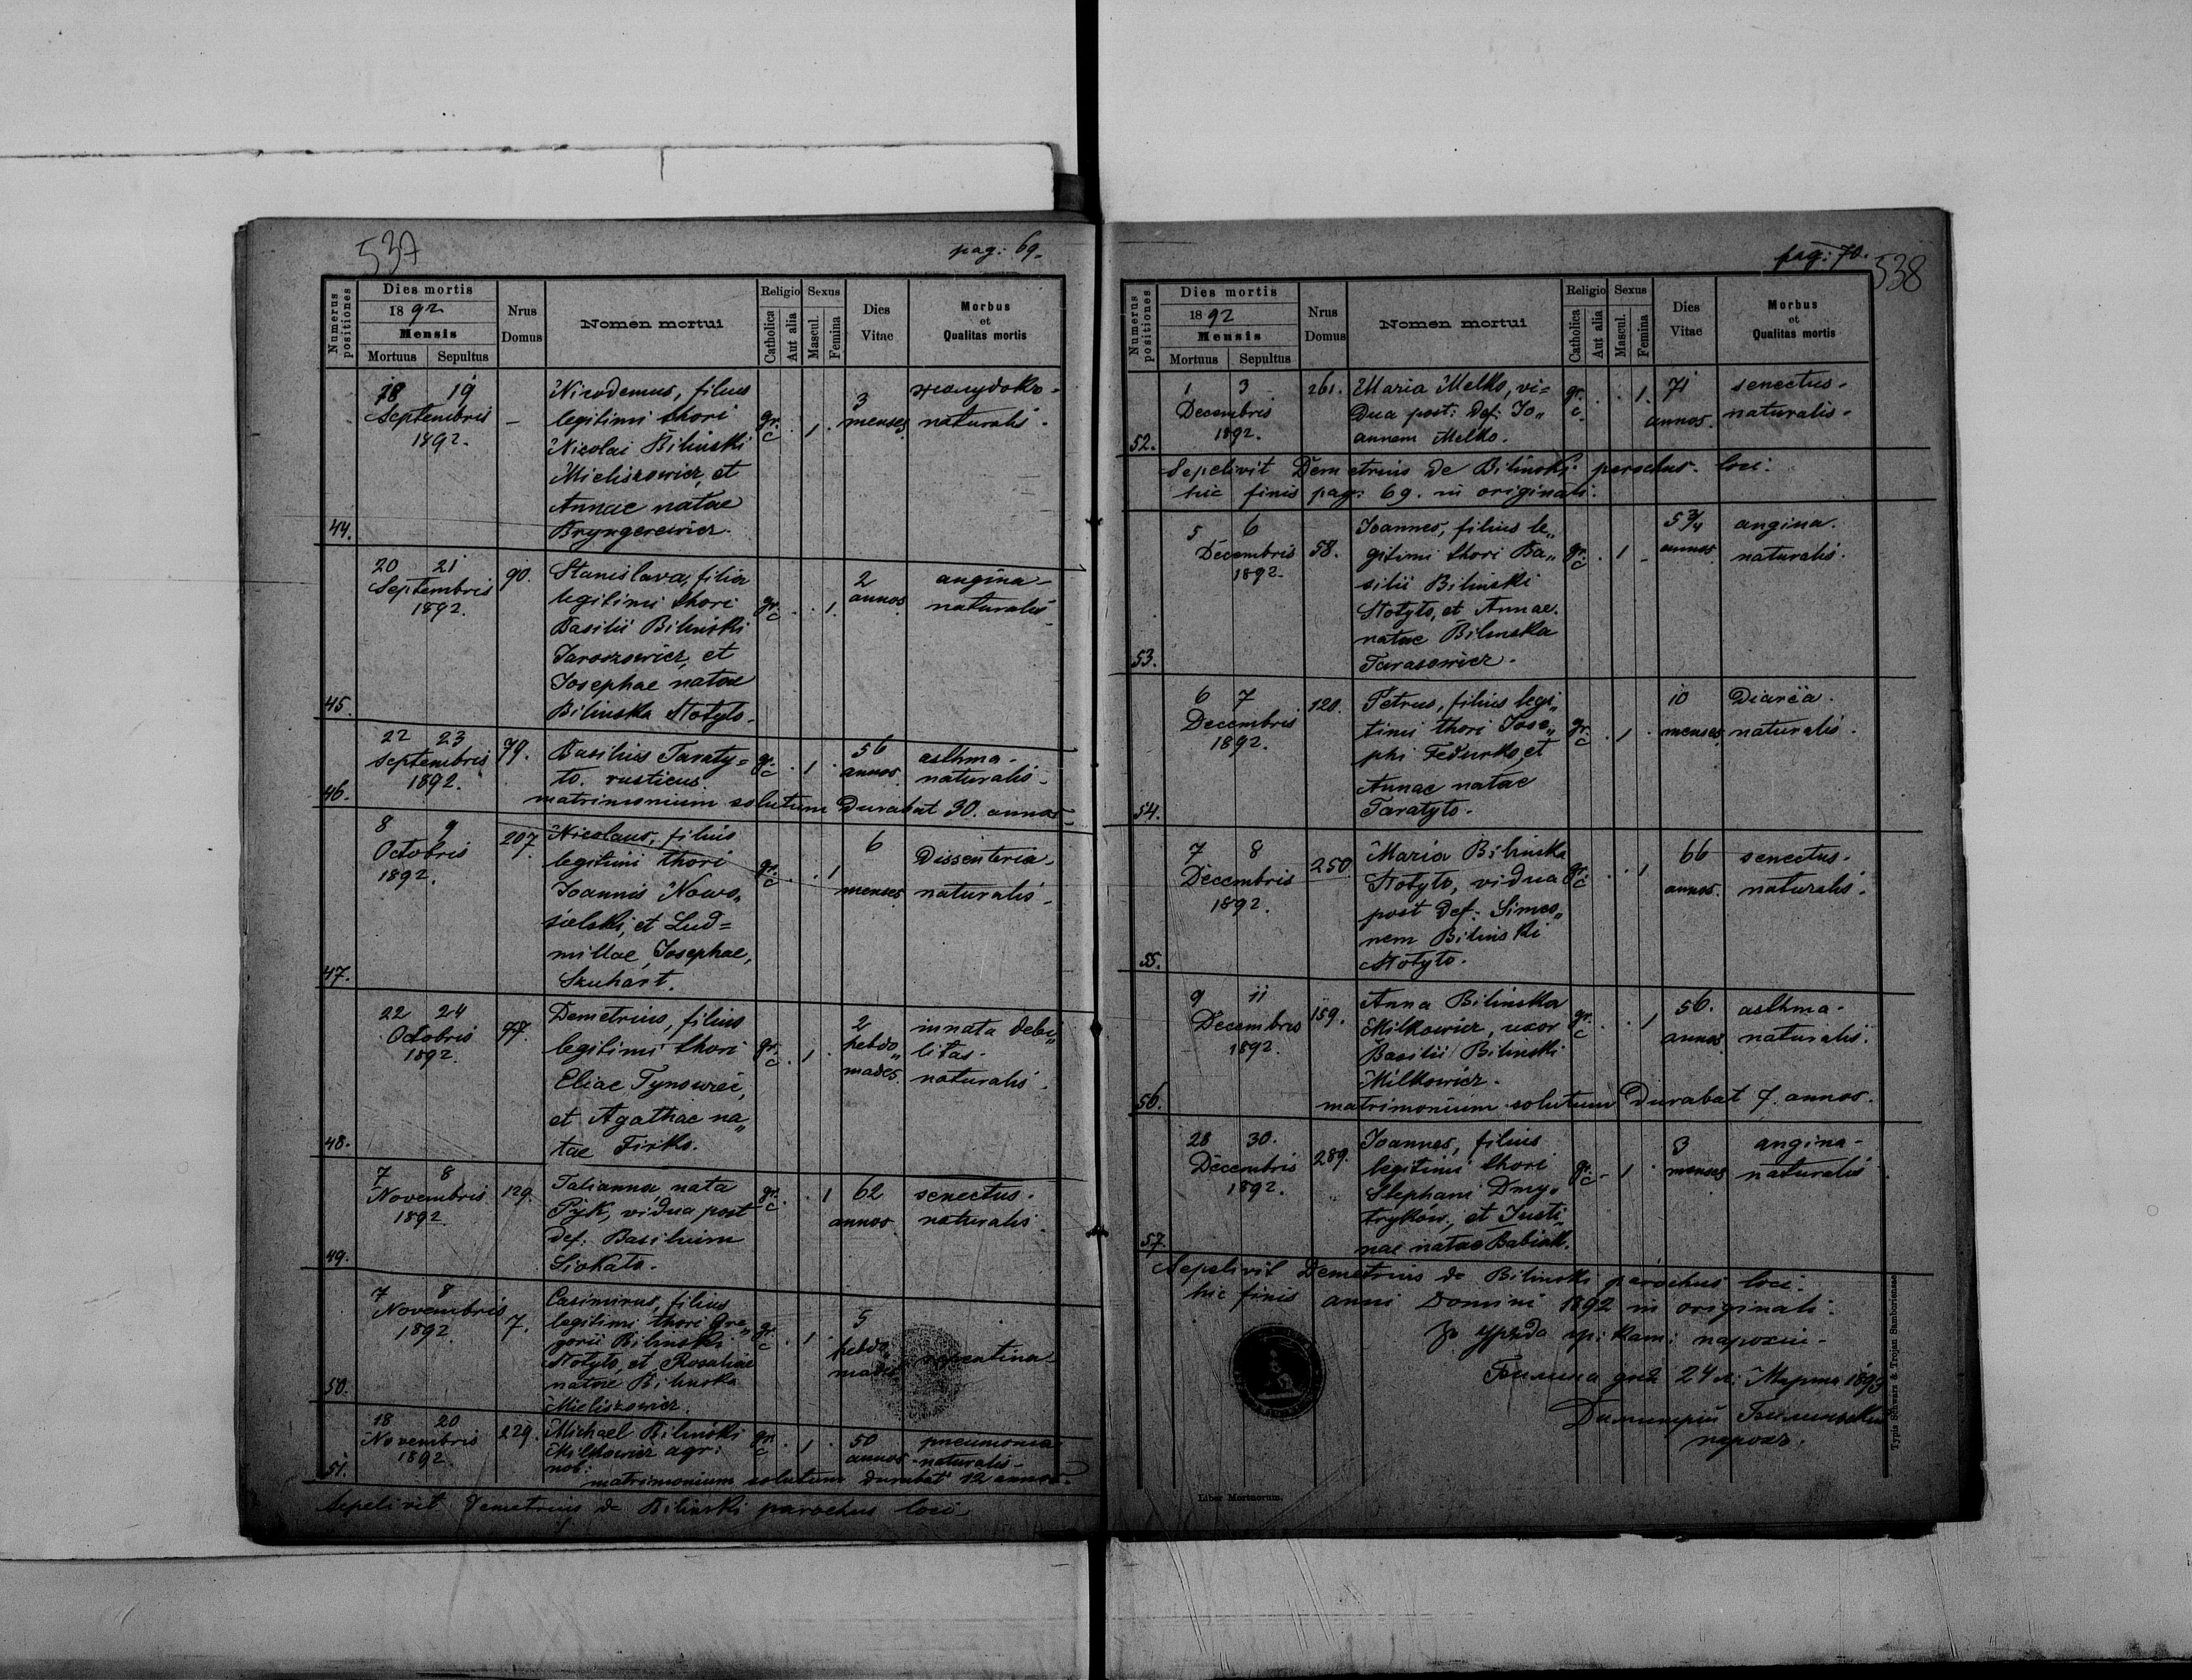 537
pag: 69.
Numerus positiones
Dies mortis
1892
Mensis
Mortuus Sepultus
Nrus Domus
Nomen mortui
Religio
Catholica
Aut alia
Sexus
Mascul.
Femina
Dies Vitae
Morbus et Qualitas mortis
44. 18 19 Septembris 1892. –
Nicodemus, filius
legitimi thori
Nicolai Bilinski
Mieliszowicz, et
Annae natae
gr. c. 1 3 menses
naturalis.
45. 20 21 Septembris 1892. 90.
Stanislava, filia
legitimi thori
Basilii Biliński
Jaroszowicz, et
Josephae natae
Bilinska Stotyto.
gr. c 1. 2 annos
angina –
naturalis
46. 22 23 Septembris 1892. 79.
Basilius Taraty=
to. rusticus
gr. c 1 56 annos
asthma.
naturalis.
matrimonium solutum durabat 30. annos
47. 8 9 Octobris 1892. 207.
Nicolaus, filius
legitimi thori
Joannis Nowo„
sielski, et Lud=
millae, Josephae,
Skuhart.
gr. c 1 6 menses
Dissenteria.
naturalis.
48. 22 24 Octobris 1892.
Demetrius, filius
legitimi thori
Eliae
et Agathae na„
tae Firko.
gr. c. 1 2 hebdo„ mades.
innata debi„
litas.
naturalis.
49. 7 8 Novembris 1892. 129.
Tatianna, nata
Pyk, vidua post
def: Basilium
Siokato.
gr. c. 1 62 annos
senectus.
naturalis.
50. 7 8 Novembris 1892. 7.
Casimirus, filius
legitimi thori Gre„
gorii Bilinski
Stotyto, et Rosaliae
natae Bilinska
Mieliszowicz.
gr. c 1 5 hebdo mades
repentina
51. 18 20 Novembris 1892. 229.
Michael Biliński
Milkowicz agr:
nob:
gr. c 1 50 annos
pneumonia
naturalis –
matrimonium solutum durabat 12 annos.
Sepelivit Demetrius de Bilinski parochus loci –
pag: 70.
538
Numerus positiones
Dies mortis
1892
Mensis
Mortuus Sepultus
Nrus Domus
Nomen mortui
Religio
Catholica
Aut alia
Sexus
Mascul.
Femina
Dies Vitae
Morbus et Qualitas mortis
52. 1 3 Decembris 1892. 261.
Maria Melko, vi=
dua post: def: Jo„
annem Melko.
gr. c. 1. 71 annos.
senectus.
naturalis.
Sepelivit Demetrius de Bilinski parochus. loci.
hic finis pag: 69. in originali.
53. 5 6 Decembris 1892. 58.
Joannes, filius le„
gitimi thori Ba„
silii Bilinski
Stotyto, et Annae.
natae Bilinska
Tarasowicz.
gr. c 1 5 3/4 annos
angina.
naturalis.
54. 6 7 Decembris 1892. 120.
Petrus, filius legi„
timi thori Jose„
phi Fedurko, et
Annae natae
Taratyto.
gr. c 1 10 menses
Diarëa.
naturalis.
55. 7 8 Decembris 1892. 250.
Maria Bilinska
Stotyto, vidua
post def: Simeo„
nem Bilinski
Stotyto.
gr. c 1 66 annos.
senectus.
naturalis.
56. 9 11 Decembris 1892. 159.
Anna Bilinska
Milkowicz, uxor
Basilii Bilinski
Milkowicz.
gr. c 1 56. annos
asthma.
naturalis.
matrimonium solutum durabat 7. annos.
57. 28 30. Decembris 1892. 289.
Joannes, filius
legitimi thori
Stephani Dmy„
tryków, et Justi„
nae natae Babiak.
gr. c 1 3 menses
angina –
naturalis
Sepelivit Demetrius de Bilinski parochus loci.
hic finis anni Domini 1892 in originali.
Зъ уряда гр: кат: парохіи –
Билина дня 24 л: Марта 1893
Димитрій Билинскій
парохъ.
Liber Mortuorum.
Typis Schwarz & Trojan Samboriensae